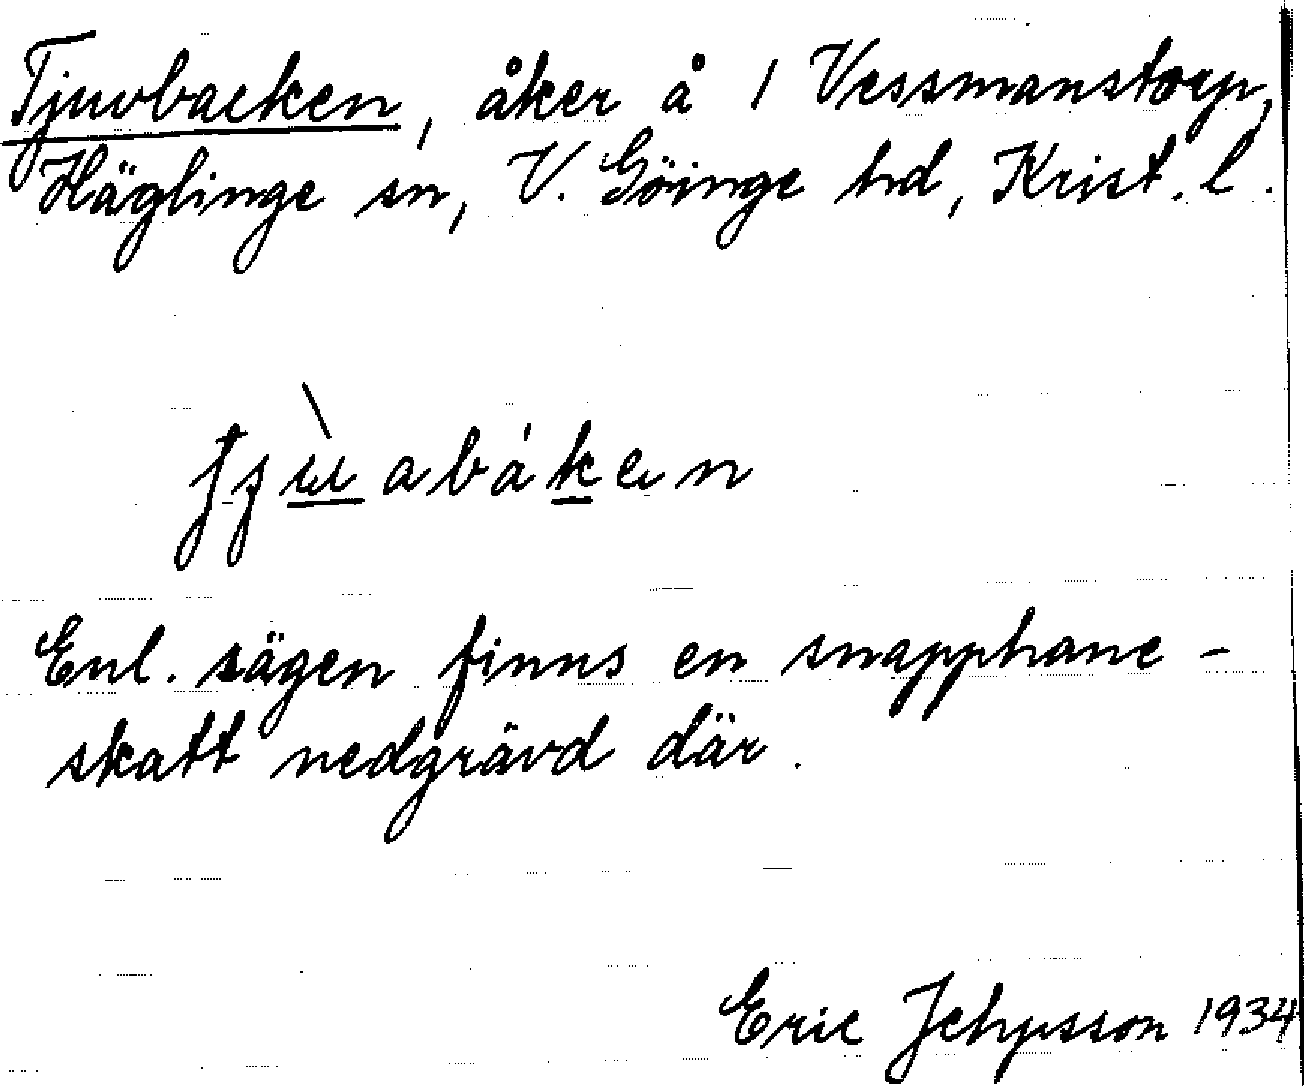 Tjuvbacken, åker å 1 Vessmanstorp,
Häglinge sn, V. Göinge hd, Krist. l.
Enl. sägen finns en snapphane-
skatt nedgrävd där.
Eric 1934